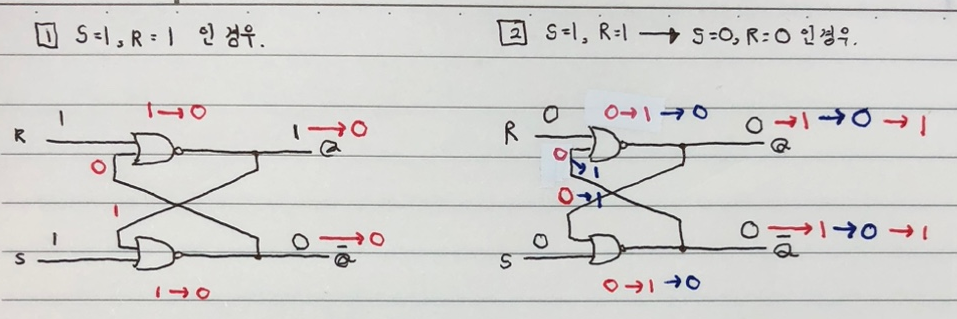 1 S=1, R=1 인 경우.
2 S=1, R=1 → S=0, R=0 인 경우.
1→0
1
R
1 → 0
Q
0
1
1
S
0 → 0
Q̄
1→0
0
0→1→0
R
0→1→0→1
Q
0→1
0→1
0
S
0→1→0→1
Q̄
0→1→0